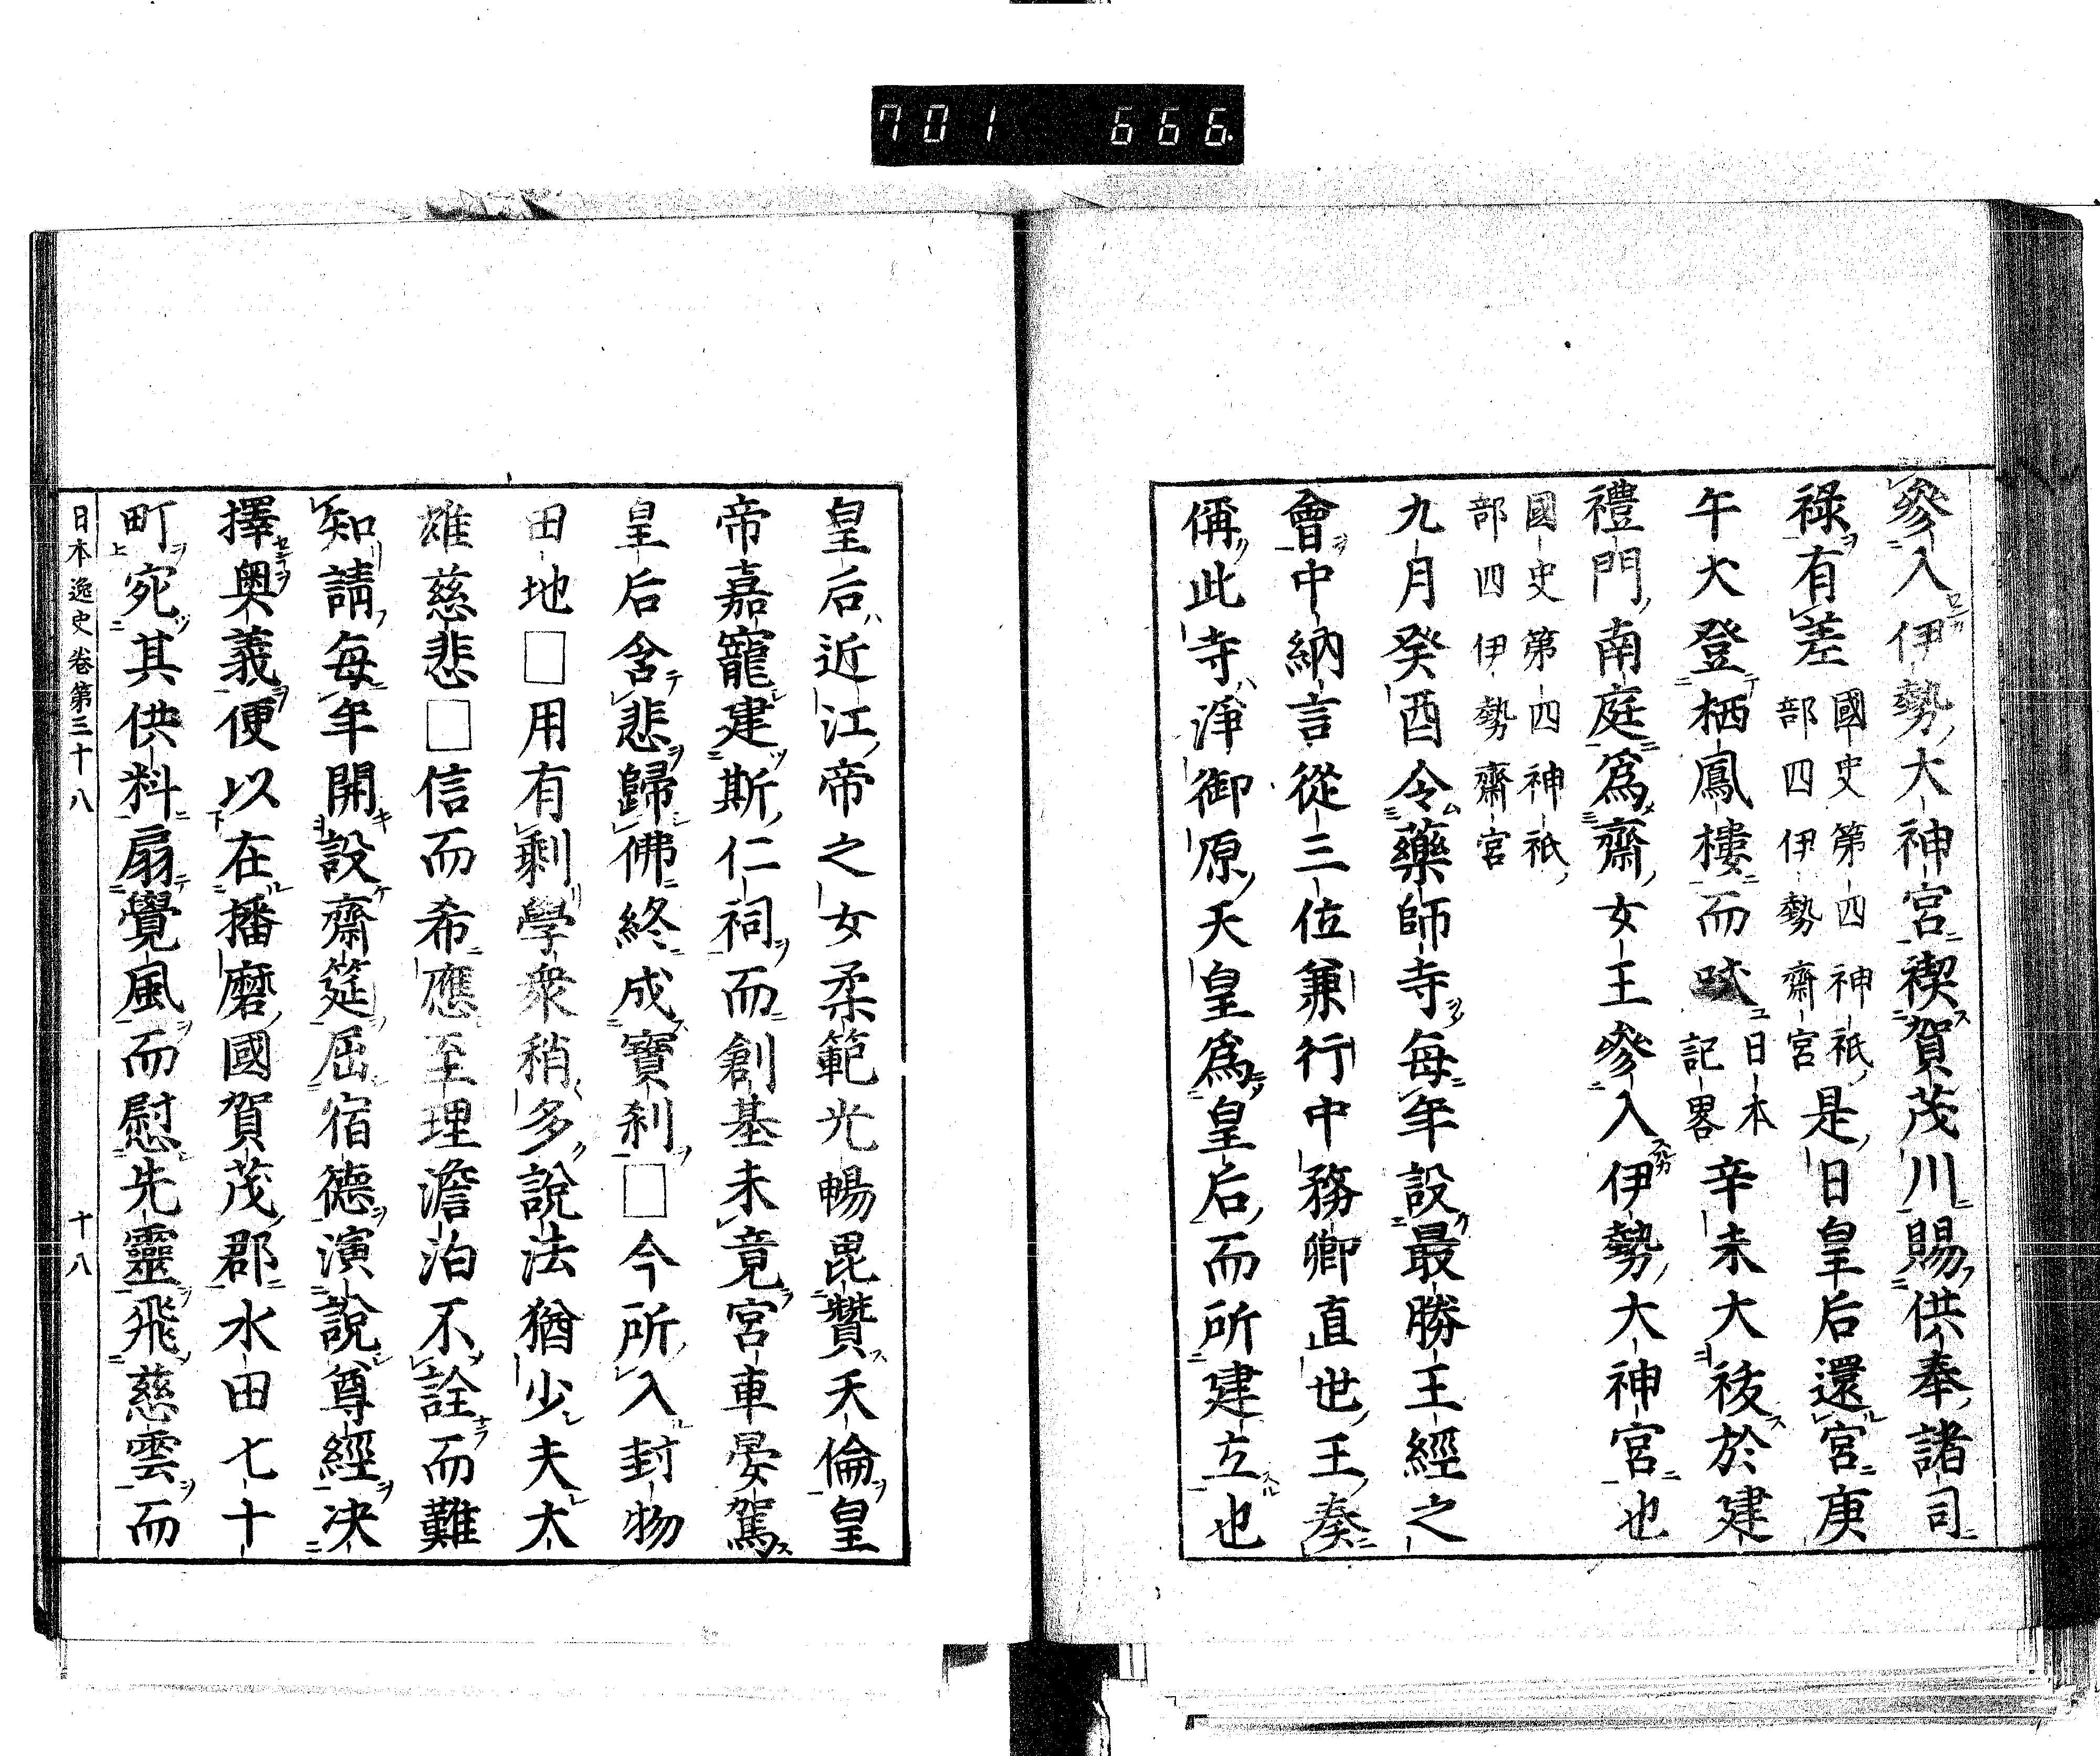 701 666
參入伊勢大神宮禊賀茂川賜供奉諸司
祿有差國史第四神祇部四伊勢齋宮是日皇后還宮庚
午大登栖鳳樓而日本記畧辛未大祓於建
禮門南庭爲齋女王參入伊勢大神宮也
國史第四神祇
部四伊勢齋宮
九月癸酉令藥師寺每年設最勝王經之
會中納言從三位兼行中務卿直世王奏
偁此寺淨御原天皇爲皇后而所建立也
皇后近江帝之女柔範光暢毘贊天倫皇
帝嘉寵建斯仁祠而創基未竟宮車晏駕
皇后含悲歸佛終成寶刹□今所入封物
田地□用有剩學衆稍多說法猶少夫大
雄慈悲□信而希應至理澹泊不詮而難
知請每年開設齋筵屈宿德演說尊經决
擇奧義便以在播磨國賀茂郡水田七十
町宛其供料扇覺風而慰先靈飛慈雲而
日本逸史卷第三十八 十八